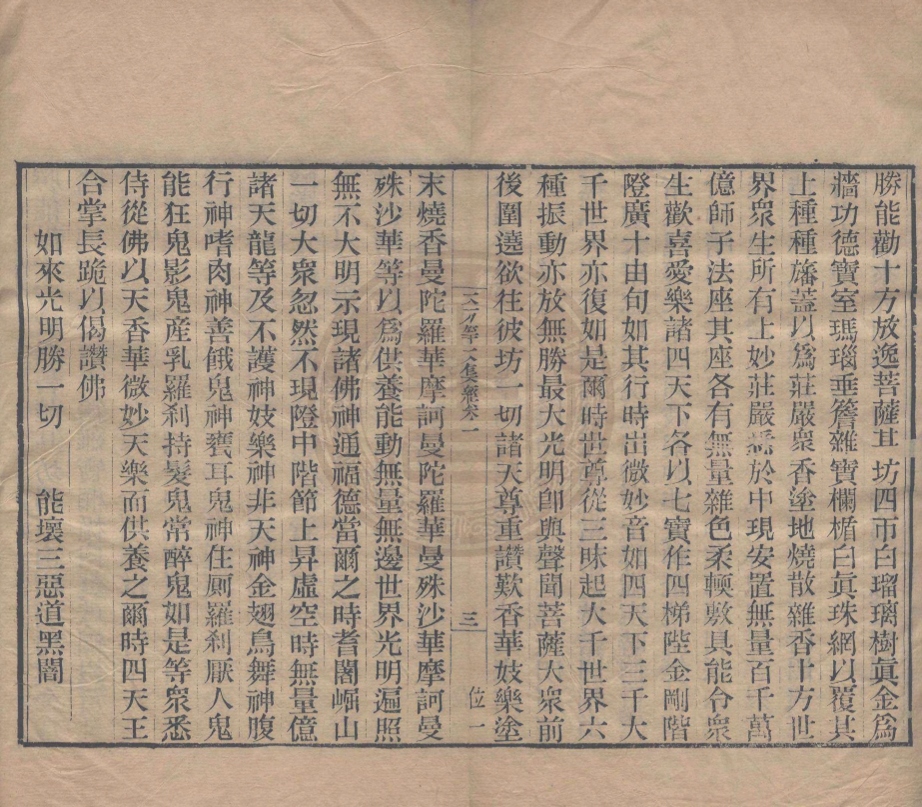 勝能勸十方放逸菩薩其坊四帀白瑠璃樹眞金爲
牆功德寶室瑪瑙垂簷雜寶欄楯白眞珠網以覆其
上種種旛蓋以爲莊嚴衆香塗地燒散雜香十方世
界衆生所有上妙莊嚴於中現安置無量百千萬
億師子法座其座各有無量雜色柔輭敷具能令衆
生歡喜愛樂諸四天下各以七寶作四梯陛金剛階
隥廣十由旬如其行時出微妙音如四天下三千大
千世界亦復如是爾時世尊從三昧起大千世界六
種振動亦放無勝最大光明卽與聲聞菩薩大衆前
後圍遶欲往彼坊一切諸天尊重讚歎香華妓樂塗
大方等大集經卷一 三 位一
末燒香曼陀羅華摩訶曼陀羅華曼殊沙華摩訶曼
殊沙華等以爲供養能動無量無邊世界光明遍照
無不大明示現諸佛神通福德當爾之時耆闍崛山
一切大衆忽然不現隥中階節上昇虛空時無量億
諸天龍等及不護神妓樂神非天神金翅鳥舞神腹
行神嗜肉神善餓鬼神甕耳鬼神住厠羅刹厭人鬼
能狂鬼影鬼産乳羅刹持髮鬼常醉鬼如是等衆悉
侍從佛以天香華微妙天樂而供養之爾時四天王
合掌長跪以偈讚佛
如來光明勝一切 能壞三惡道黑闇